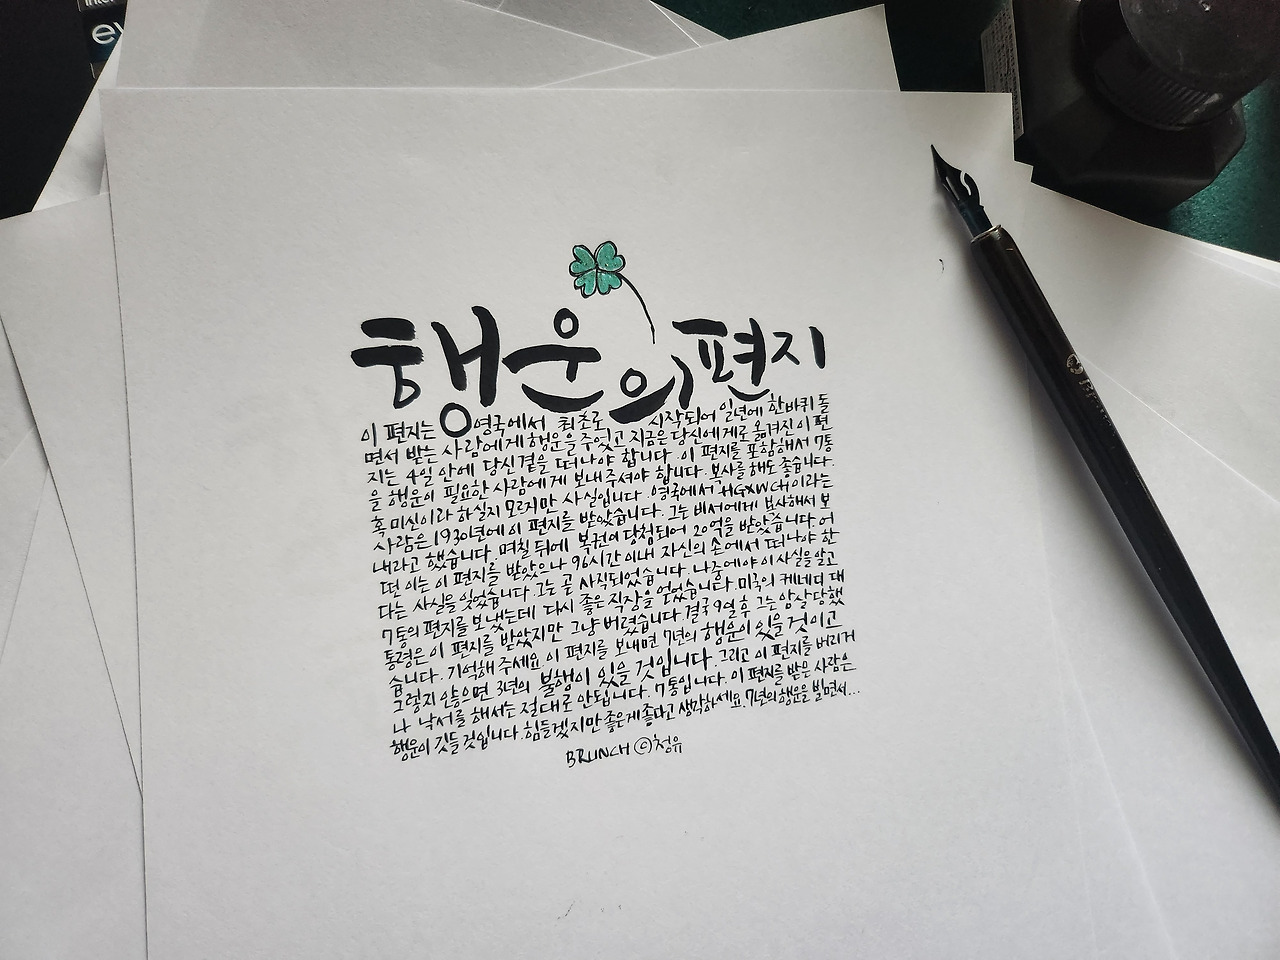 행운의 편지
이 편지는 영국에서 최초로 시작되어 일년에 한바퀴 돌
면서 받는 사람에게 행운을 주었고 지금은 당신에게로 옮겨진 이 편
지는 4일 안에 당신 곁을 떠나야 합니다. 이 편지를 포함해서 7통
을 행운이 필요한 사람에게 보내 주셔야 합니다. 복사를 해도 좋습니다.
혹 미신이라 하실지 모르지만 사실입니다. 영국에서 HGXWCH이라는
사람은 1930년에 이 편지를 받았습니다. 그는 비서에게 복사해서 보
내라고 했습니다. 며칠 뒤에 복권이 당첨되어 20억을 받았습니다. 어
떤 이는 이 편지를 받았으나 96시간 이내 자신의 손에서 떠나야 한
다는 사실을 잊었습니다. 그는 곧 사직되었습니다. 나중에야 이 사실을 알고
7통의 편지를 보냈는데 다시 좋은 직장을 얻었습니다. 미국의 케네디 대
통령은 이 편지를 받았지만 그냥 버렸습니다. 결국 9일 후 그는 암살 당했
습니다. 기억해 주세요. 이 편지를 보내면 7년의 행운이 있을 것이고
그렇지 않으면 3년의 불행이 있을 것입니다. 그리고 이 편지를 버리거
나 낙서를 해서는 절대로 안됩니다. 7통입니다. 이 편지를 받은 사람은
행운이 깃들 것입니다. 힘들겠지만 좋은게 좋다고 생각하세요. 7년의 행운을 빌면서...
BRUNCH ⓒ청유